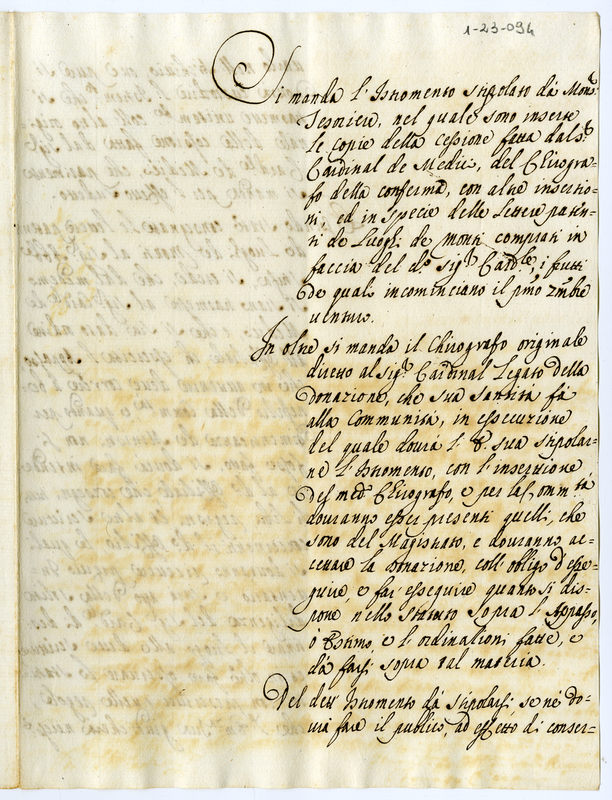 1-23-094
Si manda l'Istromento stipolato dà Mons.r
Tesoriere, nel quale sono inserte
le copie della cessione fatta dal S.r
Cardinal de Medici, del Chirogra=
fo della conferma, con altre insertio=
ni, ed in specie delle lettere paten=
ti de Luoghi de Monti comprati in
faccia del d.o Sig.r Card.le, i frutti
de quali incominciano il p̃mo Xmbre
venturo.
In oltre si manda il Chirografo originale
diretto al Sig.r Cardinal Legato della
donazione, che sua santità fà
alla Communità, in essecuzione
del quale dourà l'E. sua stipolar=
ne l'Istromento, con l'insertione
del med.o Chirografo, e per la Comm.tà
douranno esser presenti quelli, che
sono del Magistrato, e douranno ac=
cettare la donazione, coll'obligo d'esse=
guire, e far esseguire quanto si dis=
pone nello statuto sopra l'Appasso,
ò Estimo, e l'ordinationi fatte, e
dà farsi sopra tal materia.
Del dett'Istromento dà stipolarsi se ne do=
urà fare il publico, ad effetto di conser=